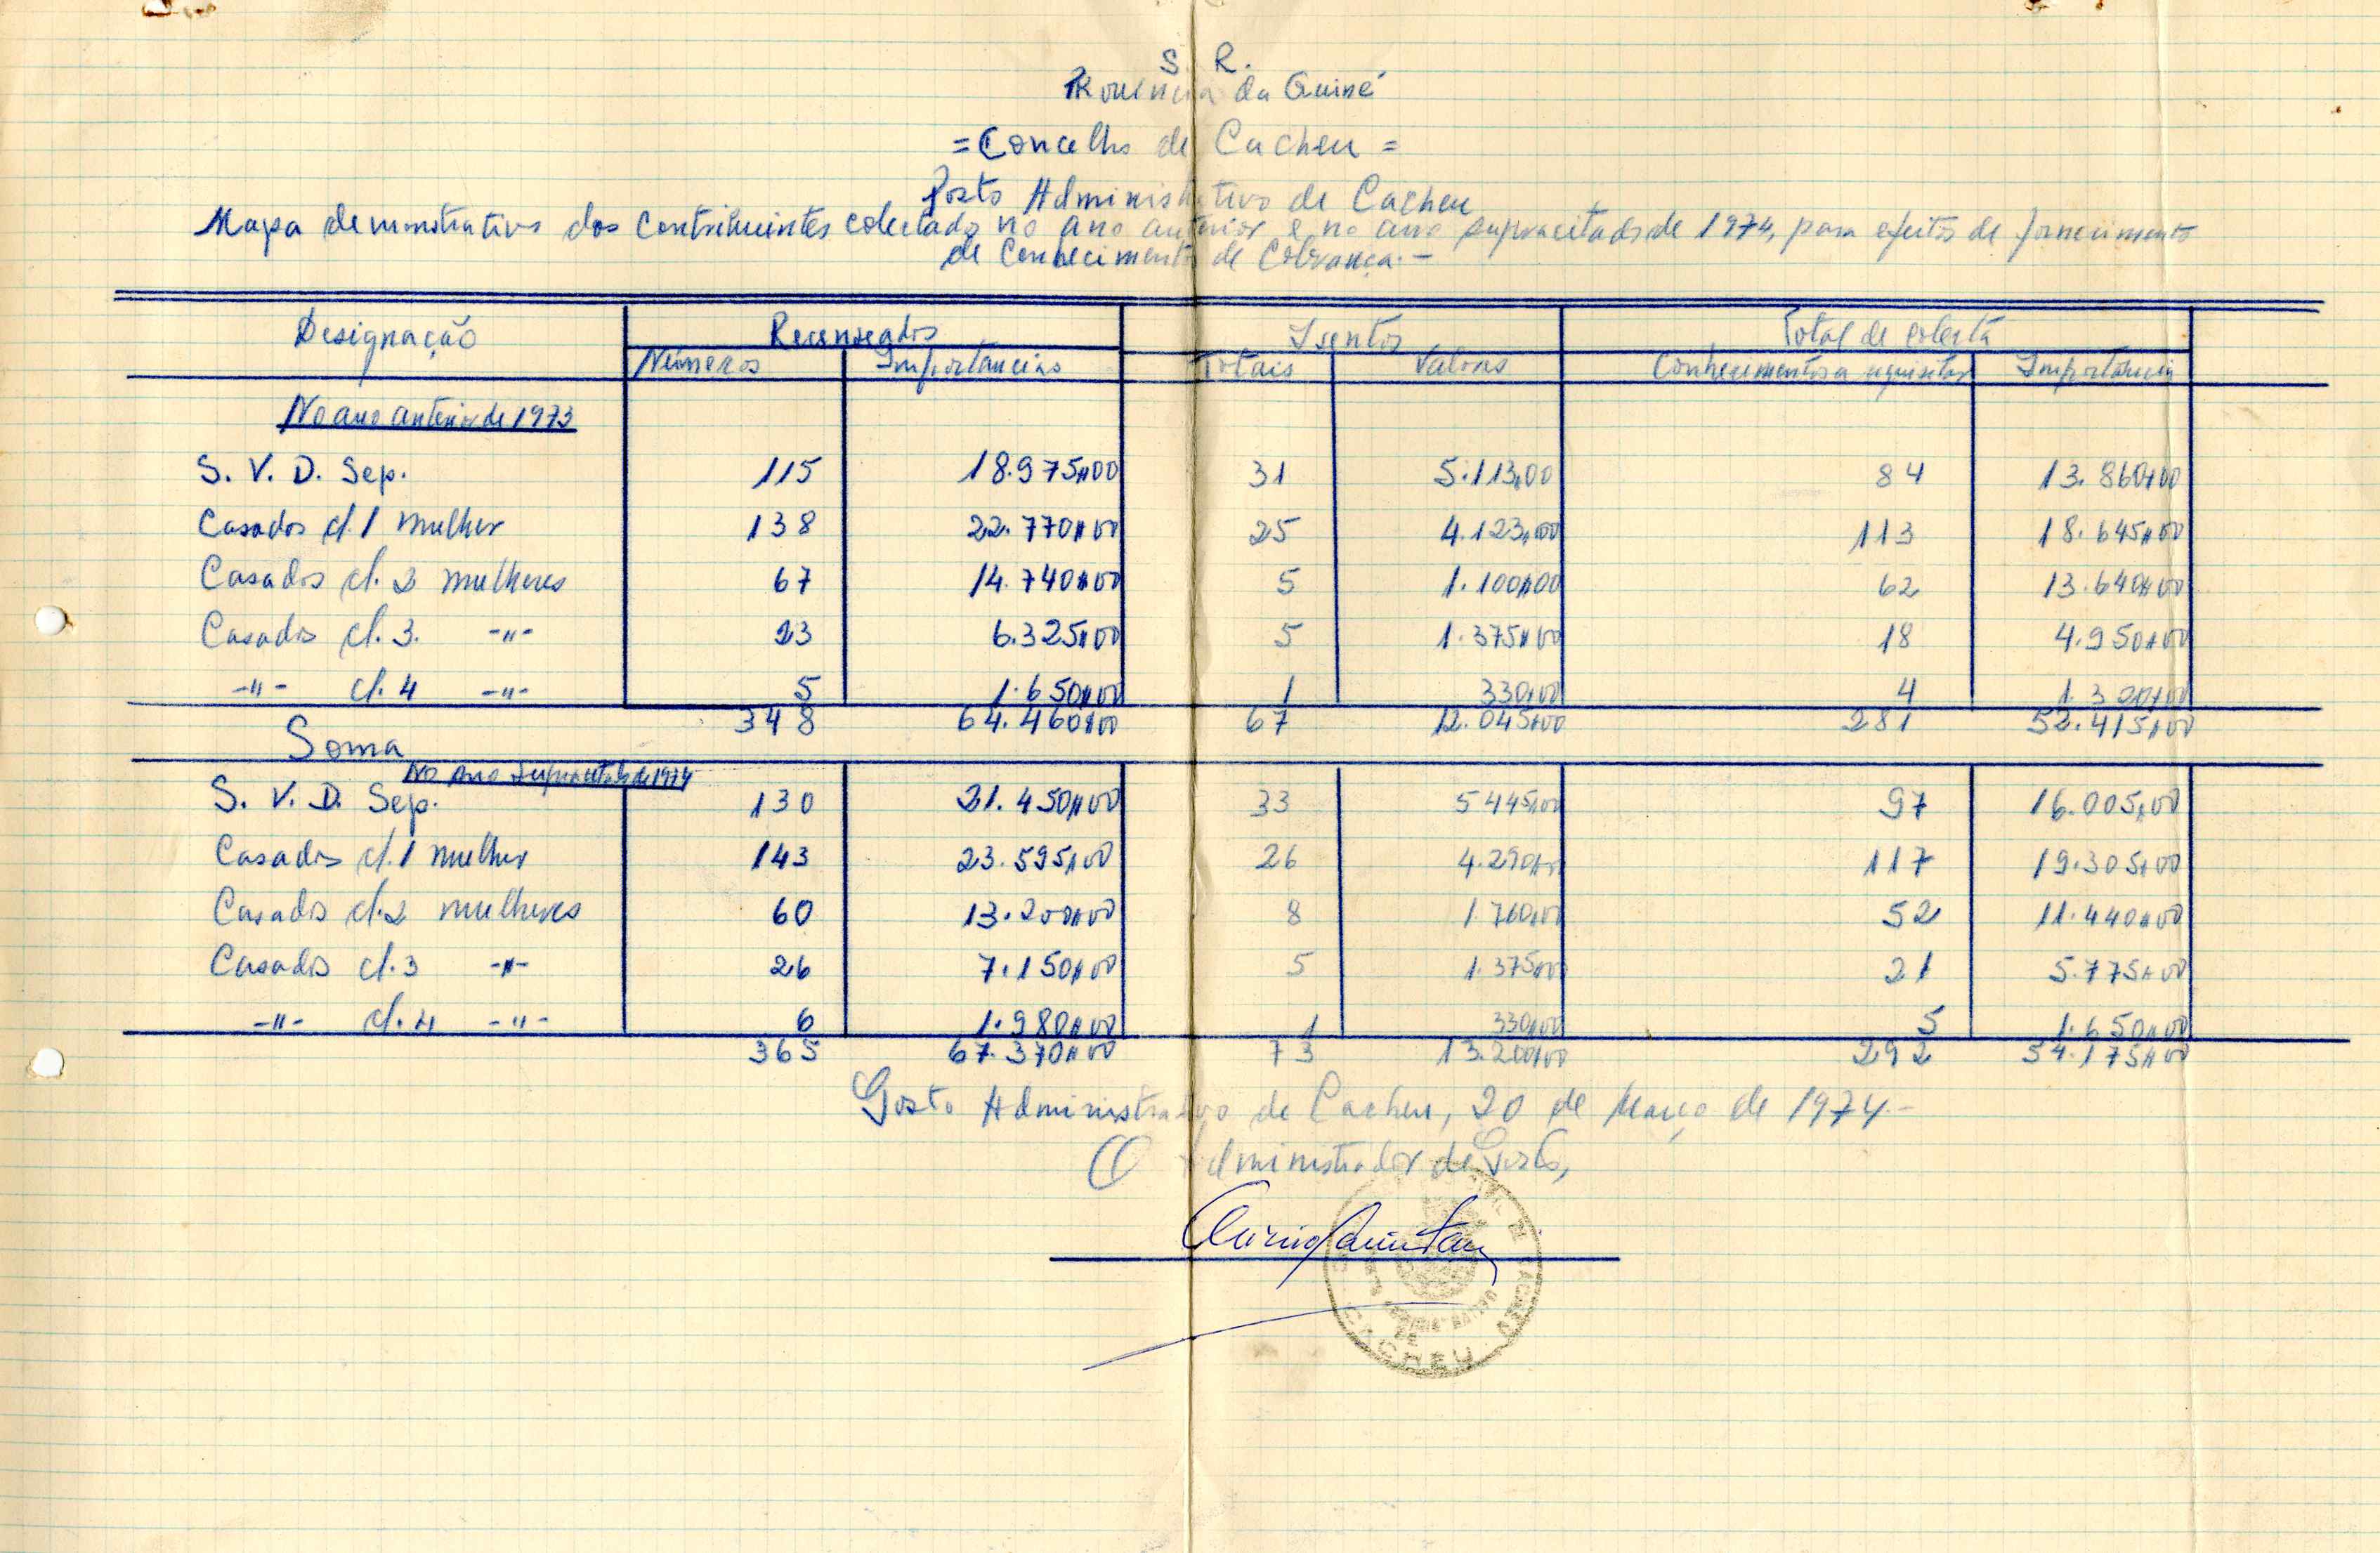 S. R.
Província da Guiné
=Concelho de Cacheu=
Posto Administrativo de Cacheu
Mapa demonstrativo dos Contribuintes colectado no ano anterior e no ano supracitado de 1974, para efeitos de fornecimento
de Conhecimento de Cobrança.-
Designação Recenseados Isentos Total de colecta
Números Importâncias Totais Valores Conhecimentos a aquisitar Importância
No ano anterior de 1973
S. V. D. Sep. 115 18.975$00 31 5.113$00 84 13.860$00
Casados c/. 1 mulher 138 22.770$00 25 4.123$00 113 18.645$00
Casados c/. 2 mulheres 67 14.740$00 5 1.100$00 62 13.640$00
Casados c/. 3. -"- 23 6.325$00 5 1.375$00 18 4.950$00
-"- c/. 4 -"- 5 1.650$00 1 330$00 4 1.320$00
Soma 348 64.460$00 67 12.045$00 281 52.415$00
No ano supracitado de 1974
S. V. D. Sep. 130 21.450$00 33 5445$00 97 16.005$00
Casados c/. 1 mulher 143 23.595$00 26 4.290$00 117 19.305$00
Casados c/. 2 mulheres 60 13.200$00 8 1.760$00 52 11.440$00
Casados c/. 3 -"- 26 7.150$00 5 1.375$00 21 5.775$00
-"- c/. 4 -"- 6 1.980$00 1 330$00 5 1.650$00
365 67.370$00 73 13.200$00 292 54.175$00
Posto Administrativo de Cacheu, 20 de Março de 1974.-
O Administrador de Posto,
CACHEU